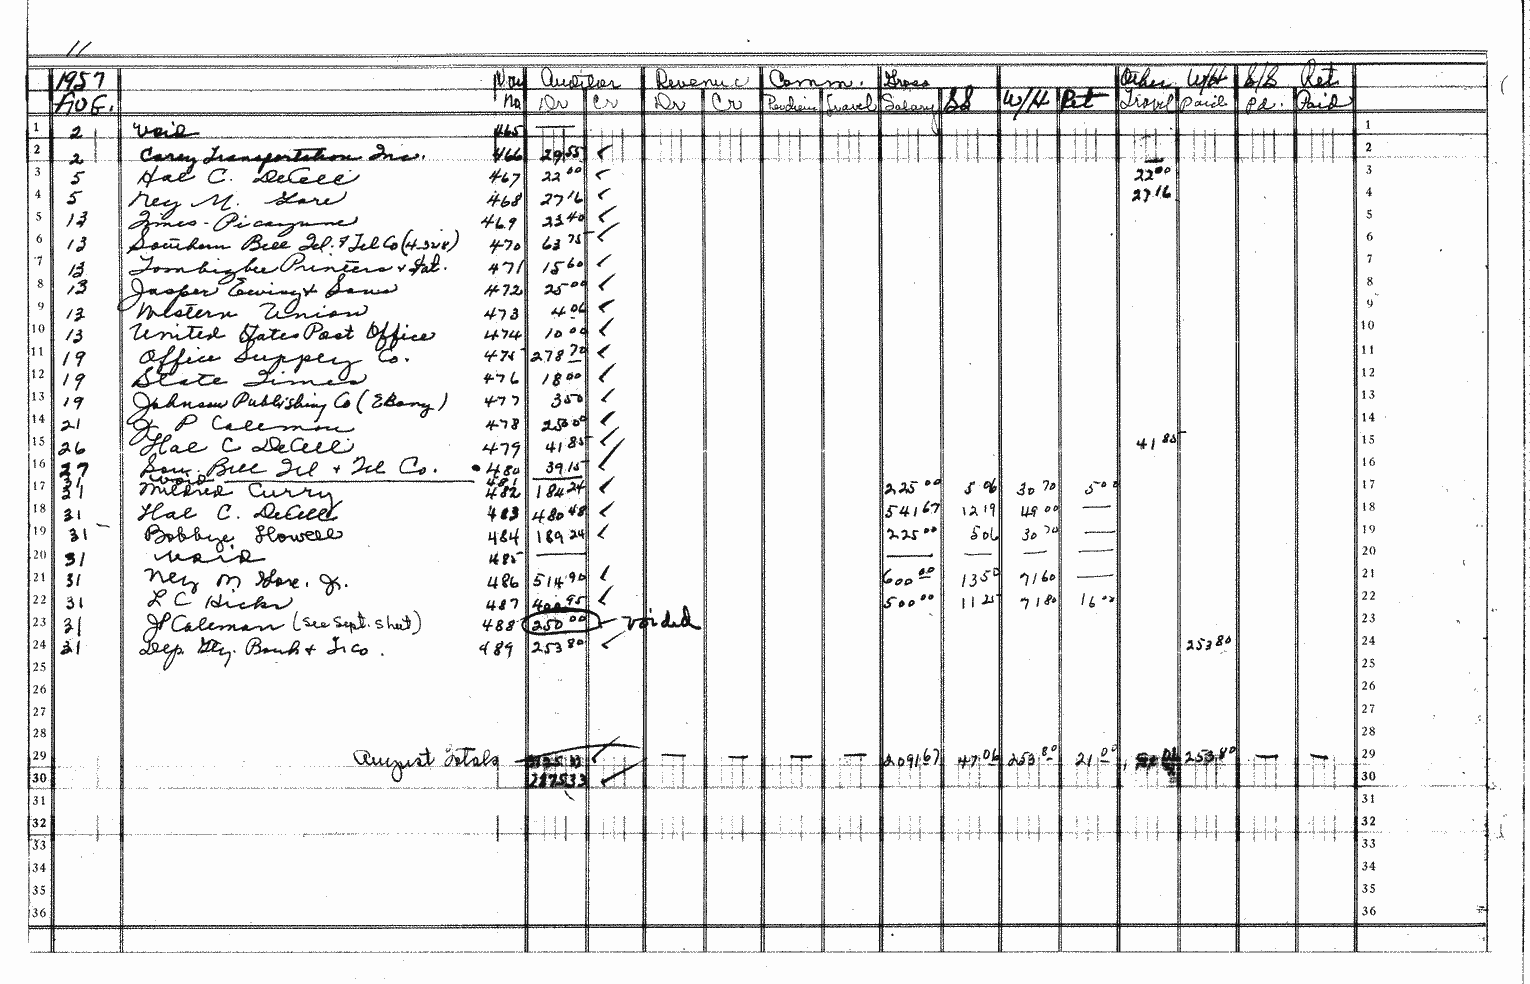 11
1957 Vou Auditor Revenue Comm. Gross Other W/H S/S Ret
AUG. No Dr Cr Dr Cr Travel Salary SS W/H Ret Travel paid pd. Paid
1 2 Void 465 — 1
2 2 Carey Transportation Inc. 466 29 55 ✓ — 2
3 5 Hal C. DeCell 467 22 00 ✓ 22 00 3
4 5 Ney M. Gore 468 27 16 ✓ 27 16 4
5 13 Times-Picayune 469 23 40 ✓ 5
6 13 Southern Bell Tel. & Tel Co (4-328) 470 63 75 ✓ 6
7 13 Tombigbee Printers & Sta. 471 15 60 ✓ 7
8 13 Jasper Ewing & Sons 472 25 00 ✓ 8
9 13 Western Union 473 4 06 ✓ 9
10 13 United States Post Office 474 10 00 ✓ 10
11 19 Office Supply Co. 475 278 70 ✓ 11
12 19 State Times 476 18 00 ✓ 12
13 19 Johnson Publishing Co (Ebony) 477 3 50 ✓ 13
14 21 J P Coleman 478 250 00 ✓ 14
15 26 Hal C DeCell 479 41 85 ✓ 41 85 15
16 27 Sou. Bell Tel & Tel Co. 480 39 15 ✓ 16
31 Void 481 —
17 31 Mildred Curry 482 184 24 ✓ 225 00 5 06 30 70 5 00 17
18 31 Hal C. DeCell 483 480 48 ✓ 541 67 12 19 49 00 — 18
19 31 Bobbye Howell 484 189 24 ✓ 225 00 5 06 30 70 — 19
20 31 Void 485 — — — — — 20
21 31 Ney M Gore. Jr. 486 514 90 ✓ 600 00 13 50 71 60 — 21
22 31 L C Hicks 487 400 95 ✓ 500 00 11 25 71 80 16 00 22
23 31 JP Coleman (see Sept. sheet) 488 250 00 ✓ voided 23
24 31 Dep Gty. Bank & Tr Co. 489 253 80 ✓ 253 80 24
25 25
26 26
27 27
28 28
29 August Totals 3125 33 ✓ — — — — 2091 67 47 06 253 80 21 00 253 80 — — 29
30 2875 33 ✓ 30
31 31
32 32
33 33
34 34
35 35
36 36